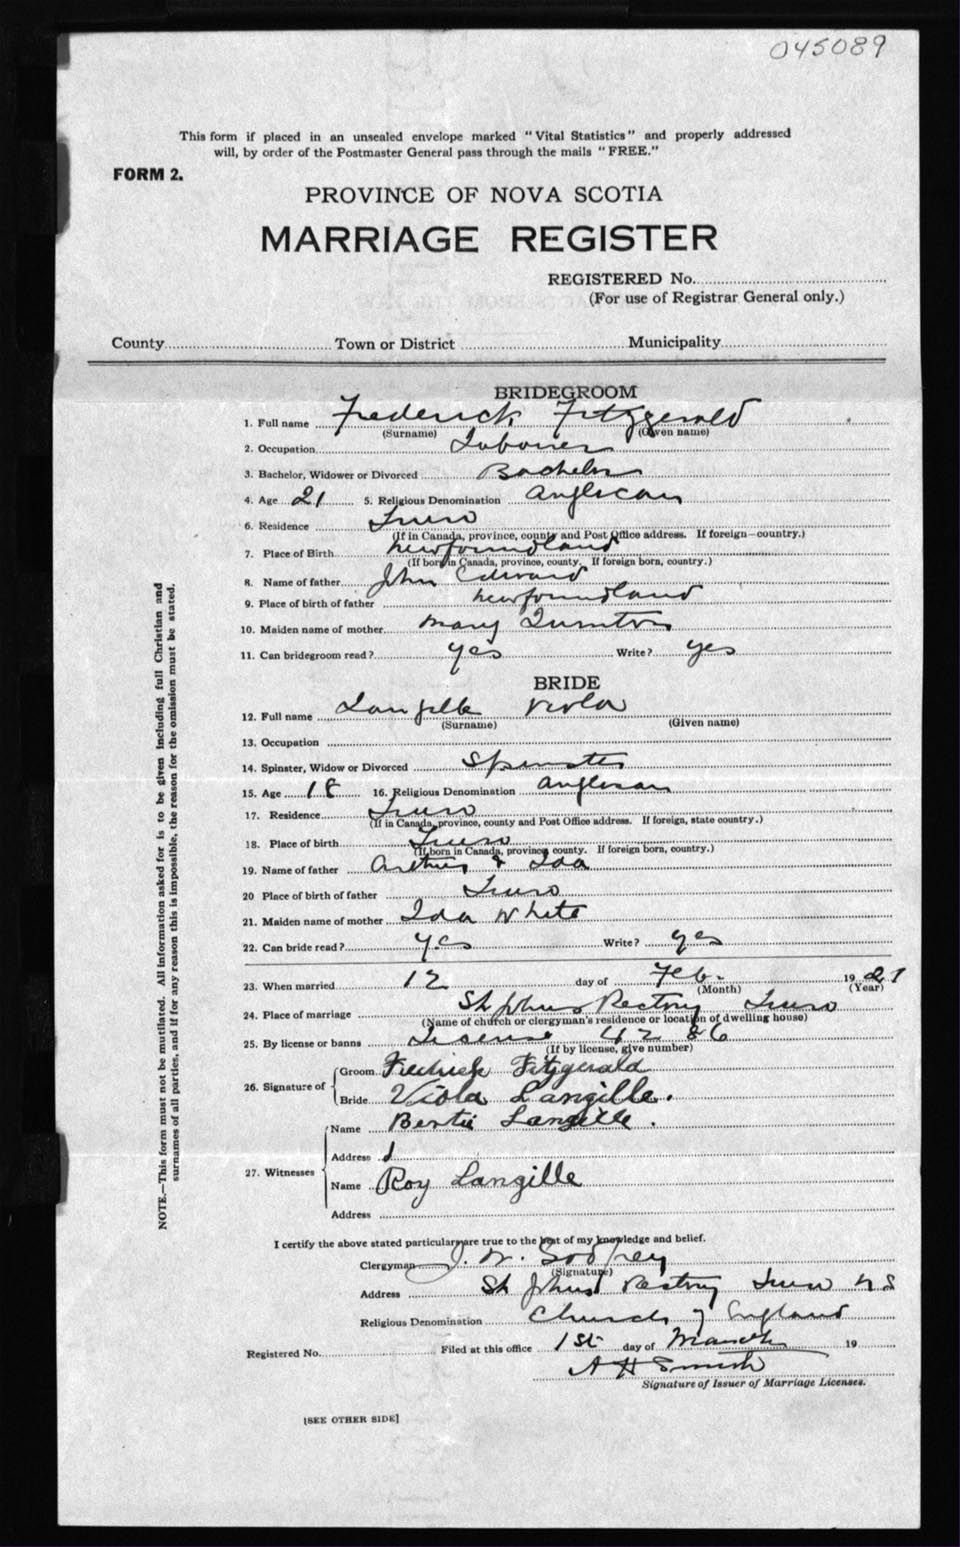 045089
This form if placed in an unsealed envelope marked "Vital Statistics" and properly addressed
will, by order of the Postmaster General pass through the mails "FREE."
FORM 2.
PROVINCE OF NOVA SCOTIA
MARRIAGE REGISTER
REGISTERED No.
(For use of Registrar General only.)
County Town or District Municipality
BRIDEGROOM
1. Full name Frederick Fitzgerald
(Surname) (Given name)
2. Occupation Laborer
3. Bachelor, Widower or Divorced Bachelor
4. Age 21 5. Religious Denomination Anglican
6. Residence Truro
(If in Canada, province, county and Post Office address. If foreign—country.)
7. Place of Birth Newfoundland
(If born in Canada, province, county. If foreign born, country.)
8. Name of father John Edward
9. Place of birth of father Newfoundland
10. Maiden name of mother Mary
11. Can bridegroom read? yes Write? yes
BRIDE
12. Full name Langille Viola
(Surname) (Given name)
13. Occupation
14. Spinster, Widow or Divorced Spinster
15. Age 18 16. Religious Denomination Anglican
17. Residence Truro
(If in Canada, province, county and Post Office address. If foreign, state country.)
18. Place of birth Truro
(If born in Canada, province county. If foreign born, country.)
19. Name of father Arthur & Ida
20 Place of birth of father Truro
21. Maiden name of mother Ida White
22. Can bride read? yes Write? yes
23. When married 12 day of Feb. 1921
(Month) (Year)
24. Place of marriage St Johns Rectory Truro
(Name of church or clergyman's residence or location of dwelling house)
25. By license or banns License 4286
(If by license, give number)
26. Signature of Groom Fredrick Fitzgerald
Bride Viola Langille.
27. Witnesses Name Bertie Langille.
Address
Name Roy Langille
Address
I certify the above stated particulars are true to the best of my knowledge and belief.
Clergyman J. W. Godfrey
(Signature)
Address St Johns Rectory Truro N S
Religious Denomination Church of England
Registered No. Filed at this office 1st day of March 19
A H Smith
Signature of Issuer of Marriage Licenses.
[SEE OTHER SIDE]
NOTE.—This form must not be mutilated. All information asked for is to be given including full Christian and
surnames of all parties, and if for any reason this is impossible, the reason for the omission must be stated.